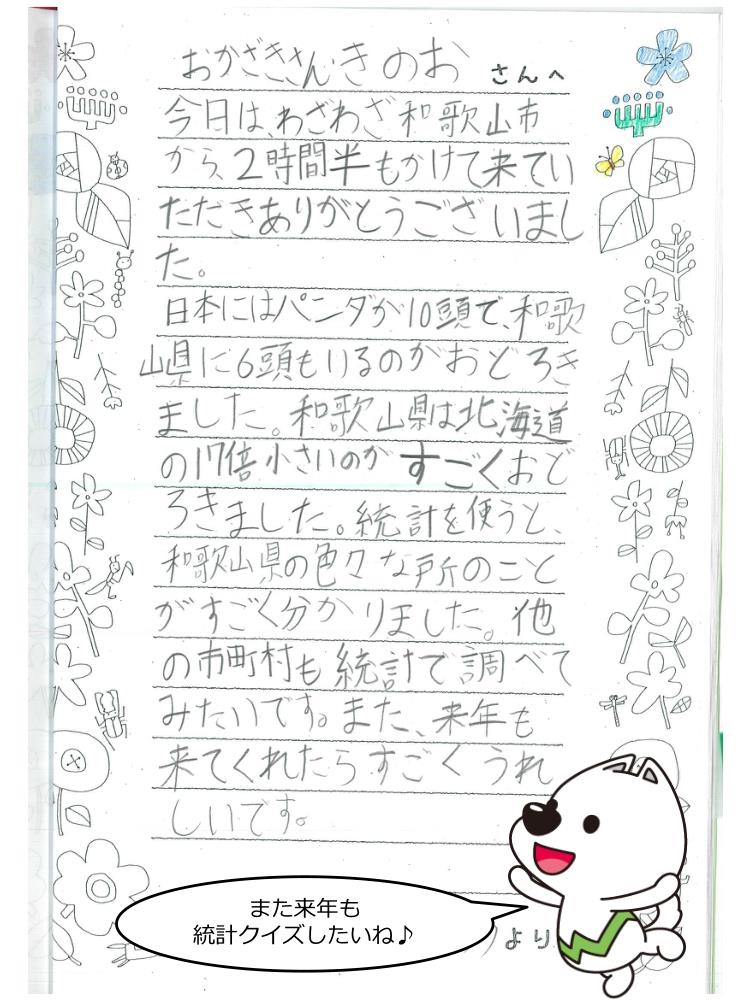 おかざきさん、きのお さんへ
今日は、わざわざ和歌山市
から、2時間半もかけて来てい
ただきありがとうございまし
た。
日本にはパンダが10頭で、和歌
山県に6頭もいるのがおどろき
ました。和歌山県は北海道
の17倍小さいのがすごくおど
ろきました。統計を使うと、
和歌山県の色々な所のこと
がすごく分かりました。他
の市町村も統計で調べて
みたいです。また、来年も
来てくれたらすごくうれ
しいです。
また来年も
統計クイズしたいね♪
より